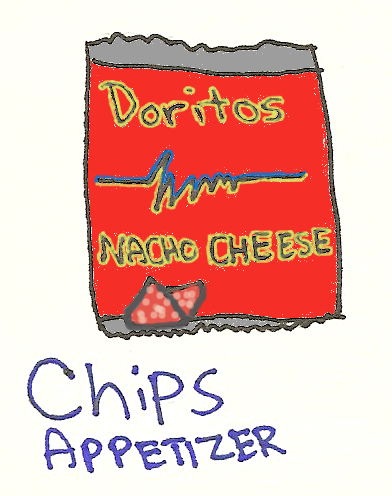 Doritos
NACHO CHEESE
Chips
APPETIZER